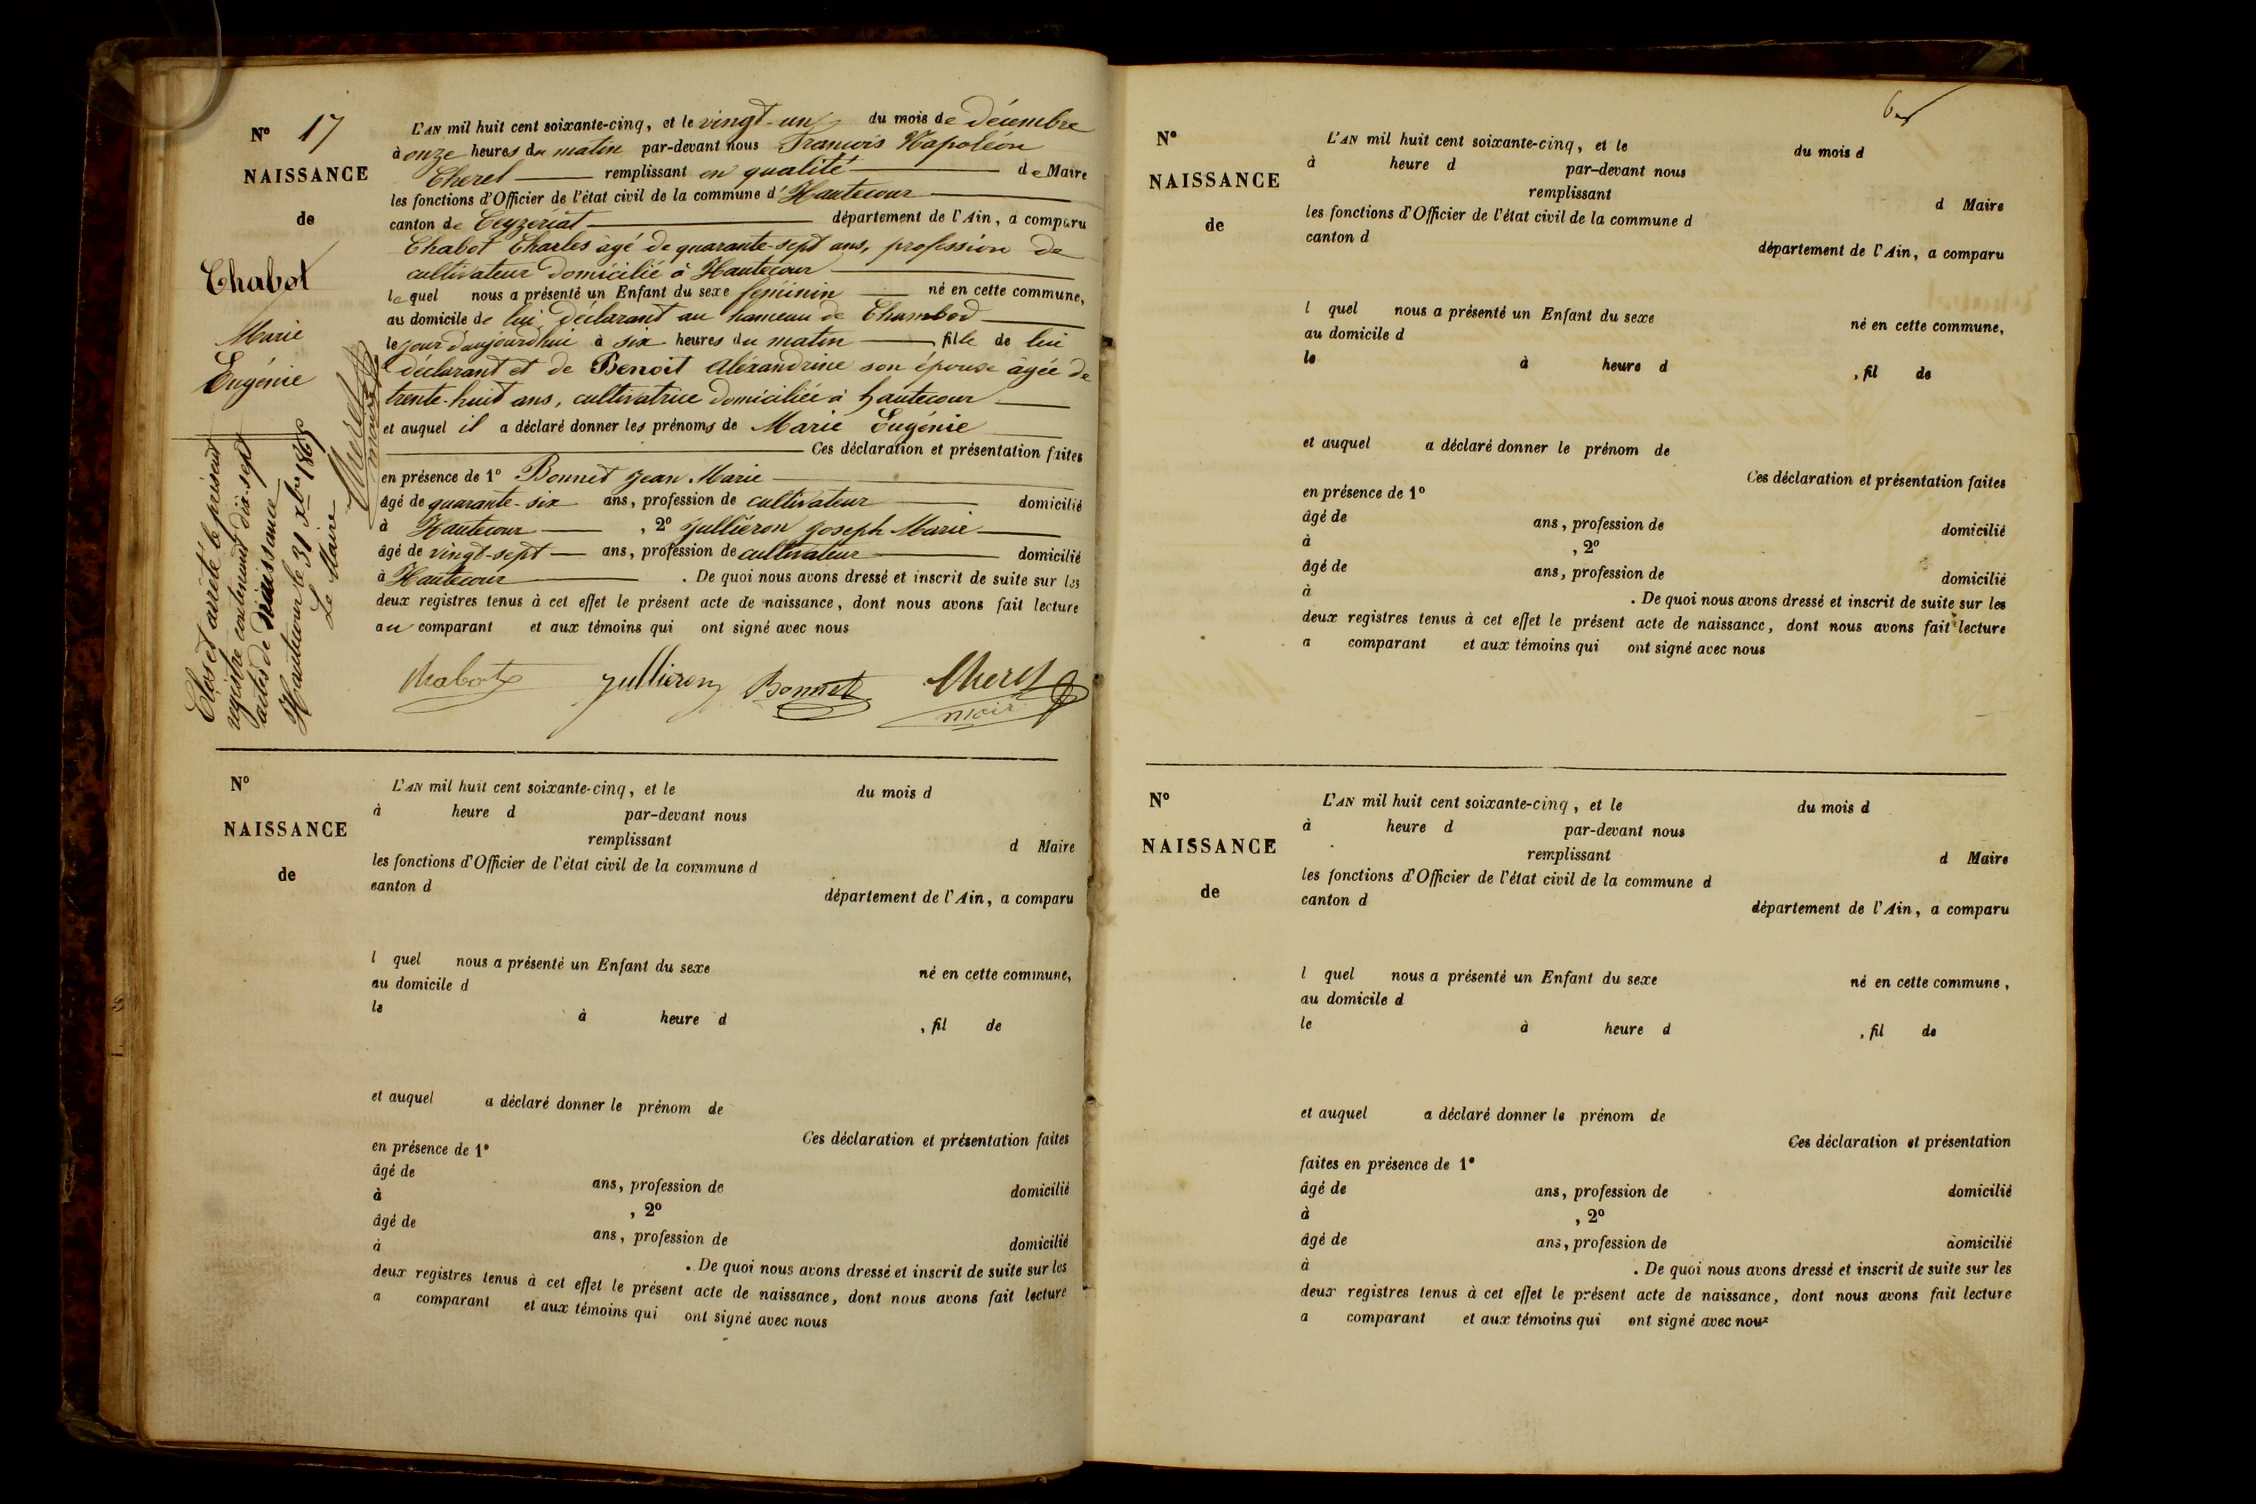 N° 17
NAISSANCE
de
Chabot
Marie
Eugénie
L'AN mil huit cent soixante-cinq, et le vingt-un du mois de décembre
à onze heures du matin par-devant nous François Napoléon
Cheret remplissant en qualité de Maire
les fonctions d'Officier de l'état civil de la commune d'Hautecour
canton de Ceyzériat département de l'Ain, a comparu
Chabot Charles âgé de quarante-sept ans, profession de
cultivateur domicilié à Hautecour
lequel nous a présenté un Enfant du sexe féminin né en cette commune,
au domicile de lui déclarant au hameau de Chambod
le jour d'aujourd'hui à six heures du matin fille de lui
déclarant et de Benoit Aléxandrine son épouse âgée de
trente-huit ans, cultivatrice domiciliée à hautecour
et auquel il a déclaré donner les prénoms de Marie Eugénie
Ces déclaration et présentation faites
en présence de 1° Bonnet Jean Marie
âgé de quarante-six ans, profession de cultivateur domicilié
à Hautecour, 2° Julliéron Joseph Marie
âgé de vingt-sept ans, profession de cultivateur domicilié
à Hautecour. De quoi nous avons dressé et inscrit de suite sur les
deux registres tenus à cet effet le présent acte de naissance, dont nous avons fait lecture
au comparant et aux témoins qui ont signé avec nous
Chabot Jullieron Bonnet Cheret
maire
Clos et arrêté le présent
registre contenant dix-sept
actes de naissance
Hautecour le 31 xbre 1865
Le Maire
Cheret
maire
N°
NAISSANCE
de
L'AN mil huit cent soixante-cinq, et le du mois d
à heure d par-devant nous
remplissant d Maire
les fonctions d'Officier de l'état civil de la commune d
canton d département de l'Ain, a comparu
l quel nous a présenté un Enfant du sexe né en cette commune,
au domicile d
le à heure d , fil de
et auquel a déclaré donner le prénom de
Ces déclaration et présentation faites
en présence de 1°
âgé de ans, profession de domicilié
à , 2°
âgé de ans, profession de domicilié
à . De quoi nous avons dressé et inscrit de suite sur les
deux registres tenus à cet effet le présent acte de naissance, dont nous avons fait lecture
a comparant et aux témoins qui ont signé avec nous
N°
NAISSANCE
de
L'AN mil huit cent soixante-cinq, et le du mois d
à heure d par-devant nous
remplissant d Maire
les fonctions d'Officier de l'état civil de la commune d
canton d département de l'Ain, a comparu
l quel nous a présenté un Enfant du sexe né en cette commune,
au domicile d
le à heure d , fil de
et auquel a déclaré donner le prénom de
Ces déclaration et présentation faites
en présence de 1°
âgé de ans, profession de domicilié
à , 2°
âgé de ans, profession de domicilié
à . De quoi nous avons dressé et inscrit de suite sur les
deux registres tenus à cet effet le présent acte de naissance, dont nous avons fait lecture
a comparant et aux témoins qui ont signé avec nous
N°
NAISSANCE
de
L'AN mil huit cent soixante-cinq, et le du mois d
à heure d par-devant nous
remplissant d Maire
les fonctions d'Officier de l'état civil de la commune d
canton d département de l'Ain, a comparu
l quel nous a présenté un Enfant du sexe né en cette commune,
au domicile d
le à heure d , fil de
et auquel a déclaré donner le prénom de
Ces déclaration et présentation
faites en présence de 1°
âgé de ans, profession de domicilié
à , 2°
âgé de ans, profession de domicilié
à . De quoi nous avons dressé et inscrit de suite sur les
deux registres tenus à cet effet le présent acte de naissance, dont nous avons fait lecture
a comparant et aux témoins qui ont signé avec nous